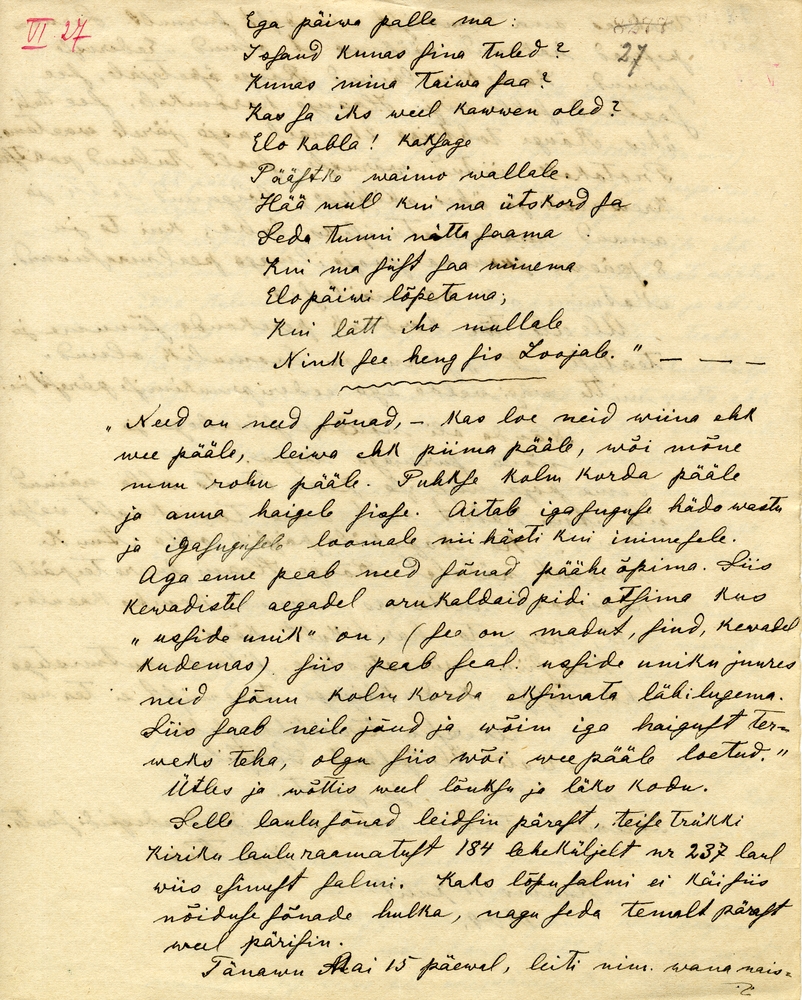 VI 27
27
Ega päiwa palle ma:
Issand kunas sina tuled?
Kunas mina taiwa saa?
Kas sa iks weel kawwen oled?
Elo kabla! kaksage
Päästke waimo wallale.
Hää mull kui ma ütskord sa
Seda tunni nätta saama
Kui ma siist saa minema
Elo päiwi lõpetama;
Kui lätt iho mullale
Nink see heng sis Loojale." — — —
„Need on need sõnad, – kas loe neid wiina ehk
wee pääle, leiwa ehk piima pääle, wõi mõne
muu rohu pääle. Puhkse kolm korda pääle
ja anna haigele sisse. Aitab igasuguse hädo wastu
ja igasugusele loomale nii hästi kui inimesele.
Aga enne peab need sõnad päähe õpima. Siis
kewadistel aegadel orukaldaid pidi otsima kus
„usside unik" on, (see on madut, sind, kewadel
kudemas) siis peab seal usside uniku juures
neid sõnu kolm korda eksimata läbi lugema.
Siis saab neile jõud ja wõim iga haigust ter-
weks teha, olgu siis wõi wee pääle loetud."
Ütles ja wõttis weel lõuksu ja läks kodu.
Selle laulu sõnad leidsin pärast, teise trükki
kiriku lauluraamatust 184 leheküljelt nr 237 laul
wiis esimest salmi. Kaks lõpu salmi ei käi siis
nõiduse sõnade hulka, nagu seda temalt pärast
weel pärisin.
Tänawu Mai 15 päewal, leiti nim. wana nais-